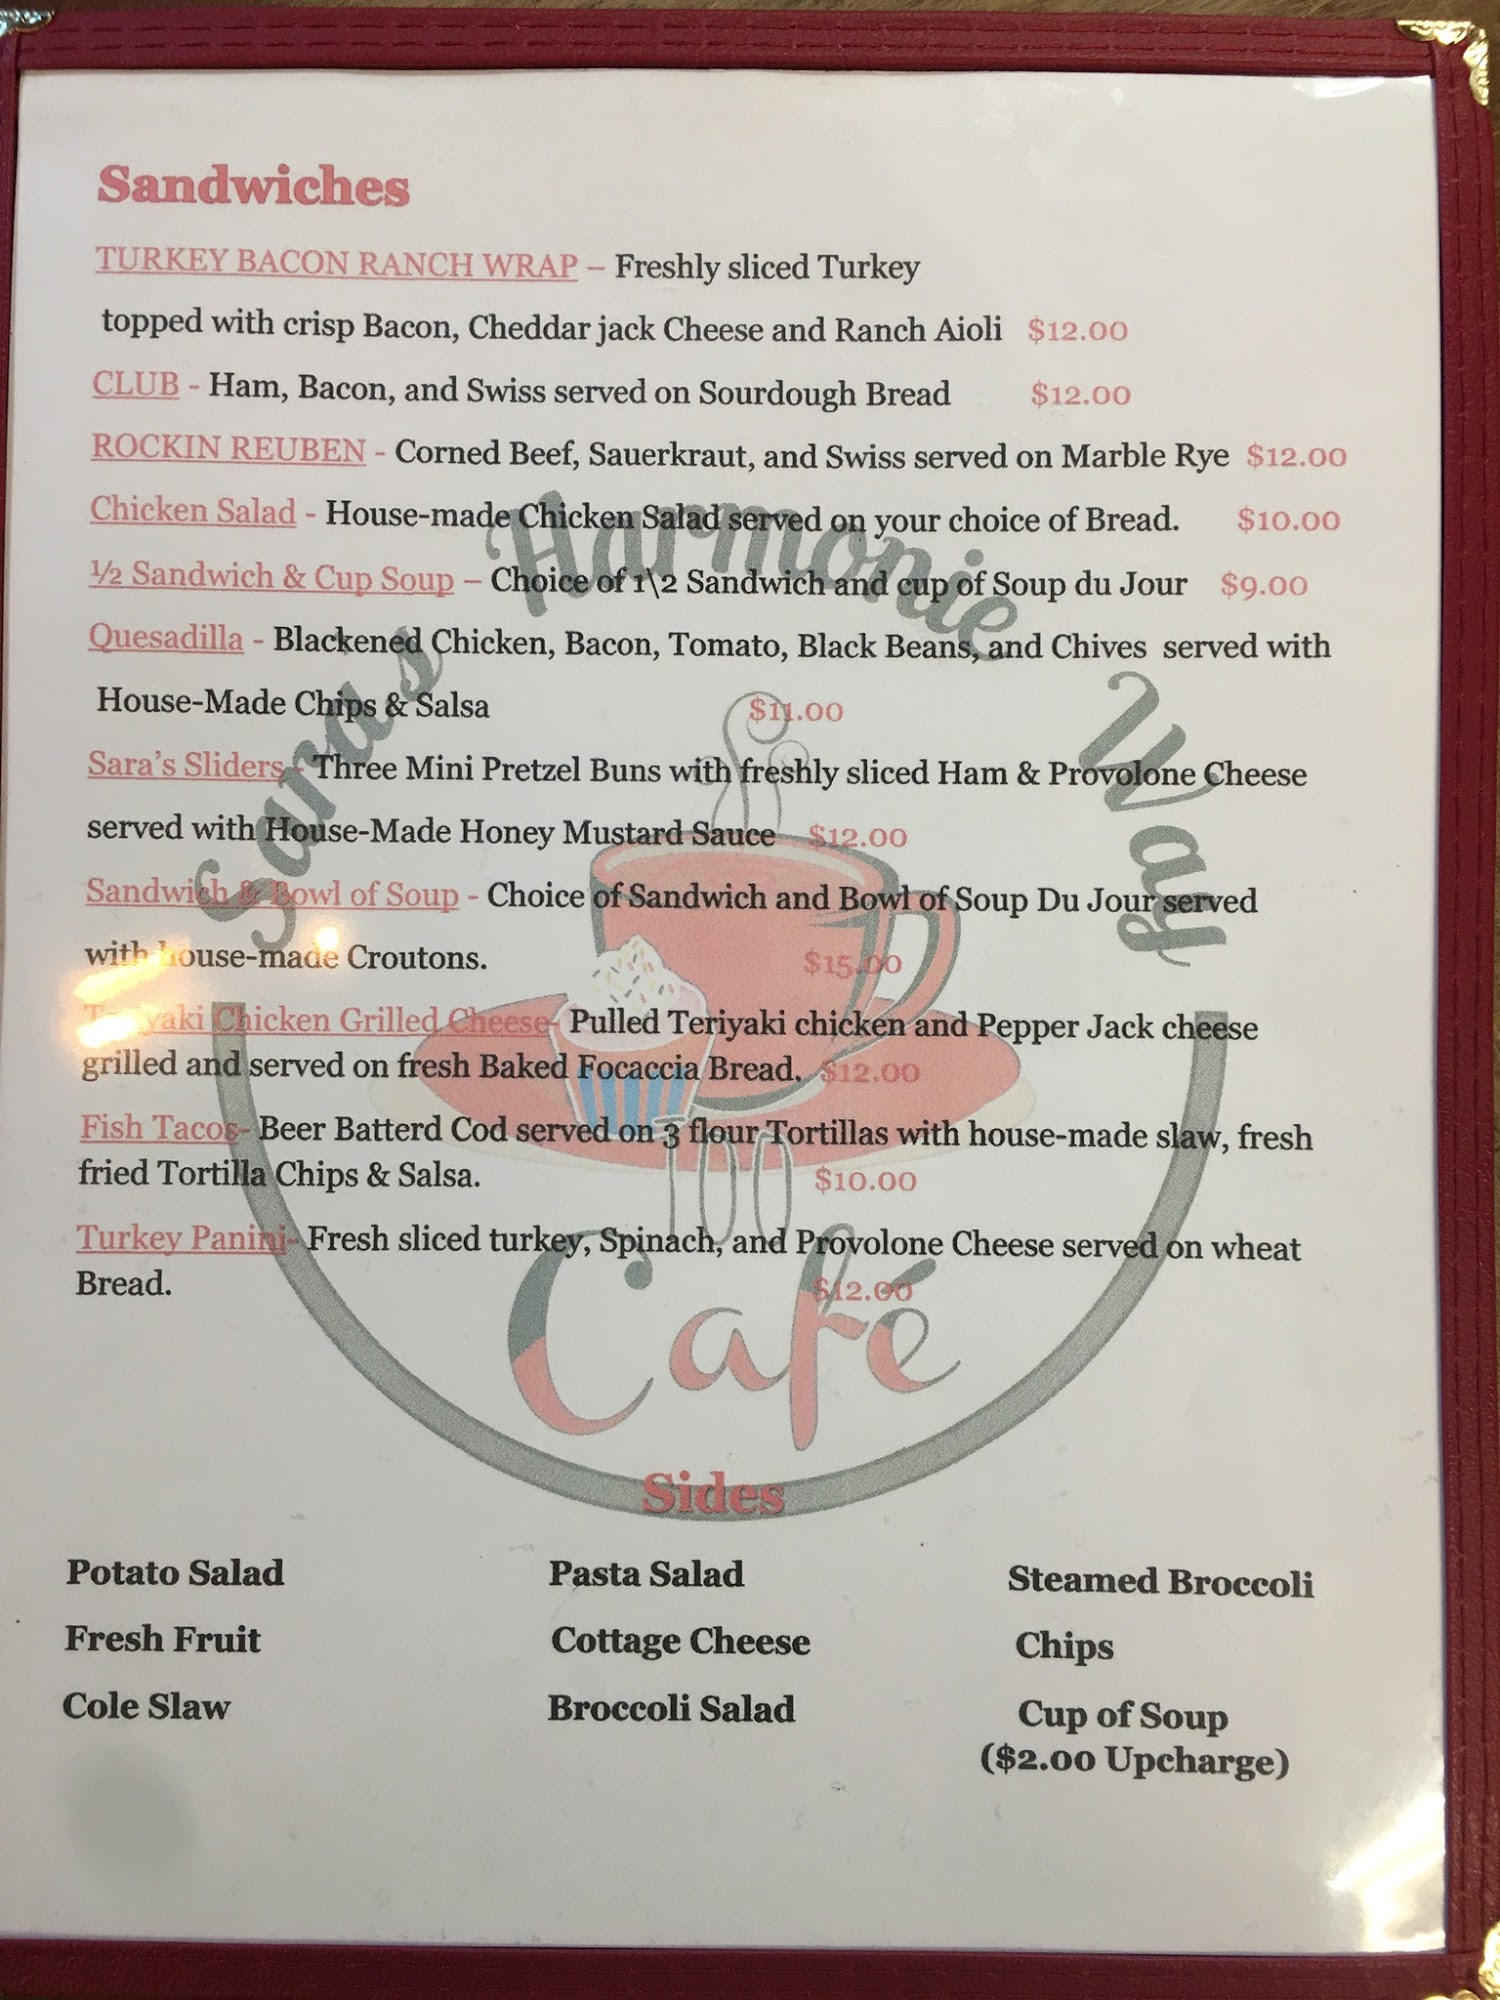 Sandwiches
TURKEY BACON RANCH WRAP – Freshly sliced Turkey
topped with crisp Bacon, Cheddar jack Cheese and Ranch Aioli $12.00
CLUB - Ham, Bacon, and Swiss served on Sourdough Bread $12.00
ROCKIN REUBEN - Corned Beef, Sauerkraut, and Swiss served on Marble Rye $12.00
Chicken Salad - House-made Chicken Salad served on your choice of Bread. $10.00
½ Sandwich & Cup Soup – Choice of 1\2 Sandwich and cup of Soup du Jour $9.00
Quesadilla - Blackened Chicken, Bacon, Tomato, Black Beans, and Chives served with
House-Made Chips & Salsa $11.00
Sara's Sliders - Three Mini Pretzel Buns with freshly sliced Ham & Provolone Cheese
served with House-Made Honey Mustard Sauce $12.00
Sandwich & Bowl of Soup - Choice of Sandwich and Bowl of Soup Du Jour served
with house-made Croutons. $15.00
Teriyaki Chicken Grilled Cheese- Pulled Teriyaki chicken and Pepper Jack cheese
grilled and served on fresh Baked Focaccia Bread. $12.00
Fish Tacos- Beer Batterd Cod served on 3 flour Tortillas with house-made slaw, fresh
fried Tortilla Chips & Salsa. $10.00
Turkey Panini- Fresh sliced turkey, Spinach, and Provolone Cheese served on wheat
Bread. $12.00
Sara's Harmonie Way
Café
Sides
Potato Salad Pasta Salad Steamed Broccoli
Fresh Fruit Cottage Cheese Chips
Cole Slaw Broccoli Salad Cup of Soup
($2.00 Upcharge)